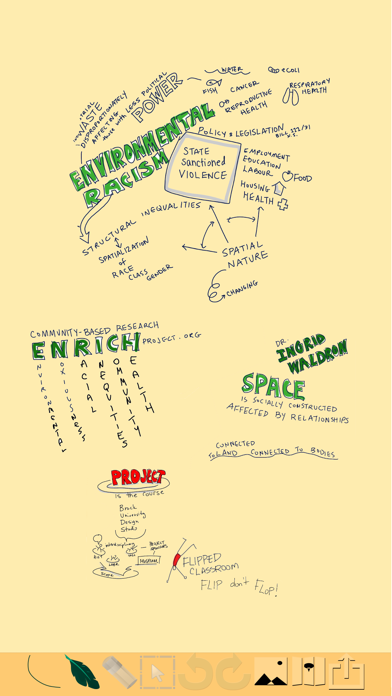 WATER
e coli
FISH
CANCER
RESPIRATORY
HEALTH
OR REPRODUCTIVE
HEALTH
WASTE
DISPROPORTIONATELY
AFFECTING
those with LESS POLITICAL
POWER
ENVIRONMENTAL
RACISM
POLICY & LEGISLATION
STATE
Sanctioned
VIOLENCE
EMPLOYMENT
EDUCATION
LABOUR
FOOD
HOUSING
HEALTH
STRUCTURAL INEQUALITIES
SPATIALIZATION
of
RACE
CLASS
GENDER
SPATIAL
NATURE
CHANGING
COMMUNITY-BASED RESEARCH
ENRICH PROJECT.ORG
ENVIRONMENTAL
NOXIOUSNESS
RACIAL
INEQUITIES
COMMUNITY
HEALTH
DR
INGRID
WALDRON
SPACE
IS SOCIALLY CONSTRUCTED
AFFECTED BY RELATIONSHIPS
CONNECTED
to LAND CONNECTED TO BODIES
PROJECT
is the course
Brock
University
Design
Studio
FLIPPED
CLASSROOM
FLIP don't FLOP!